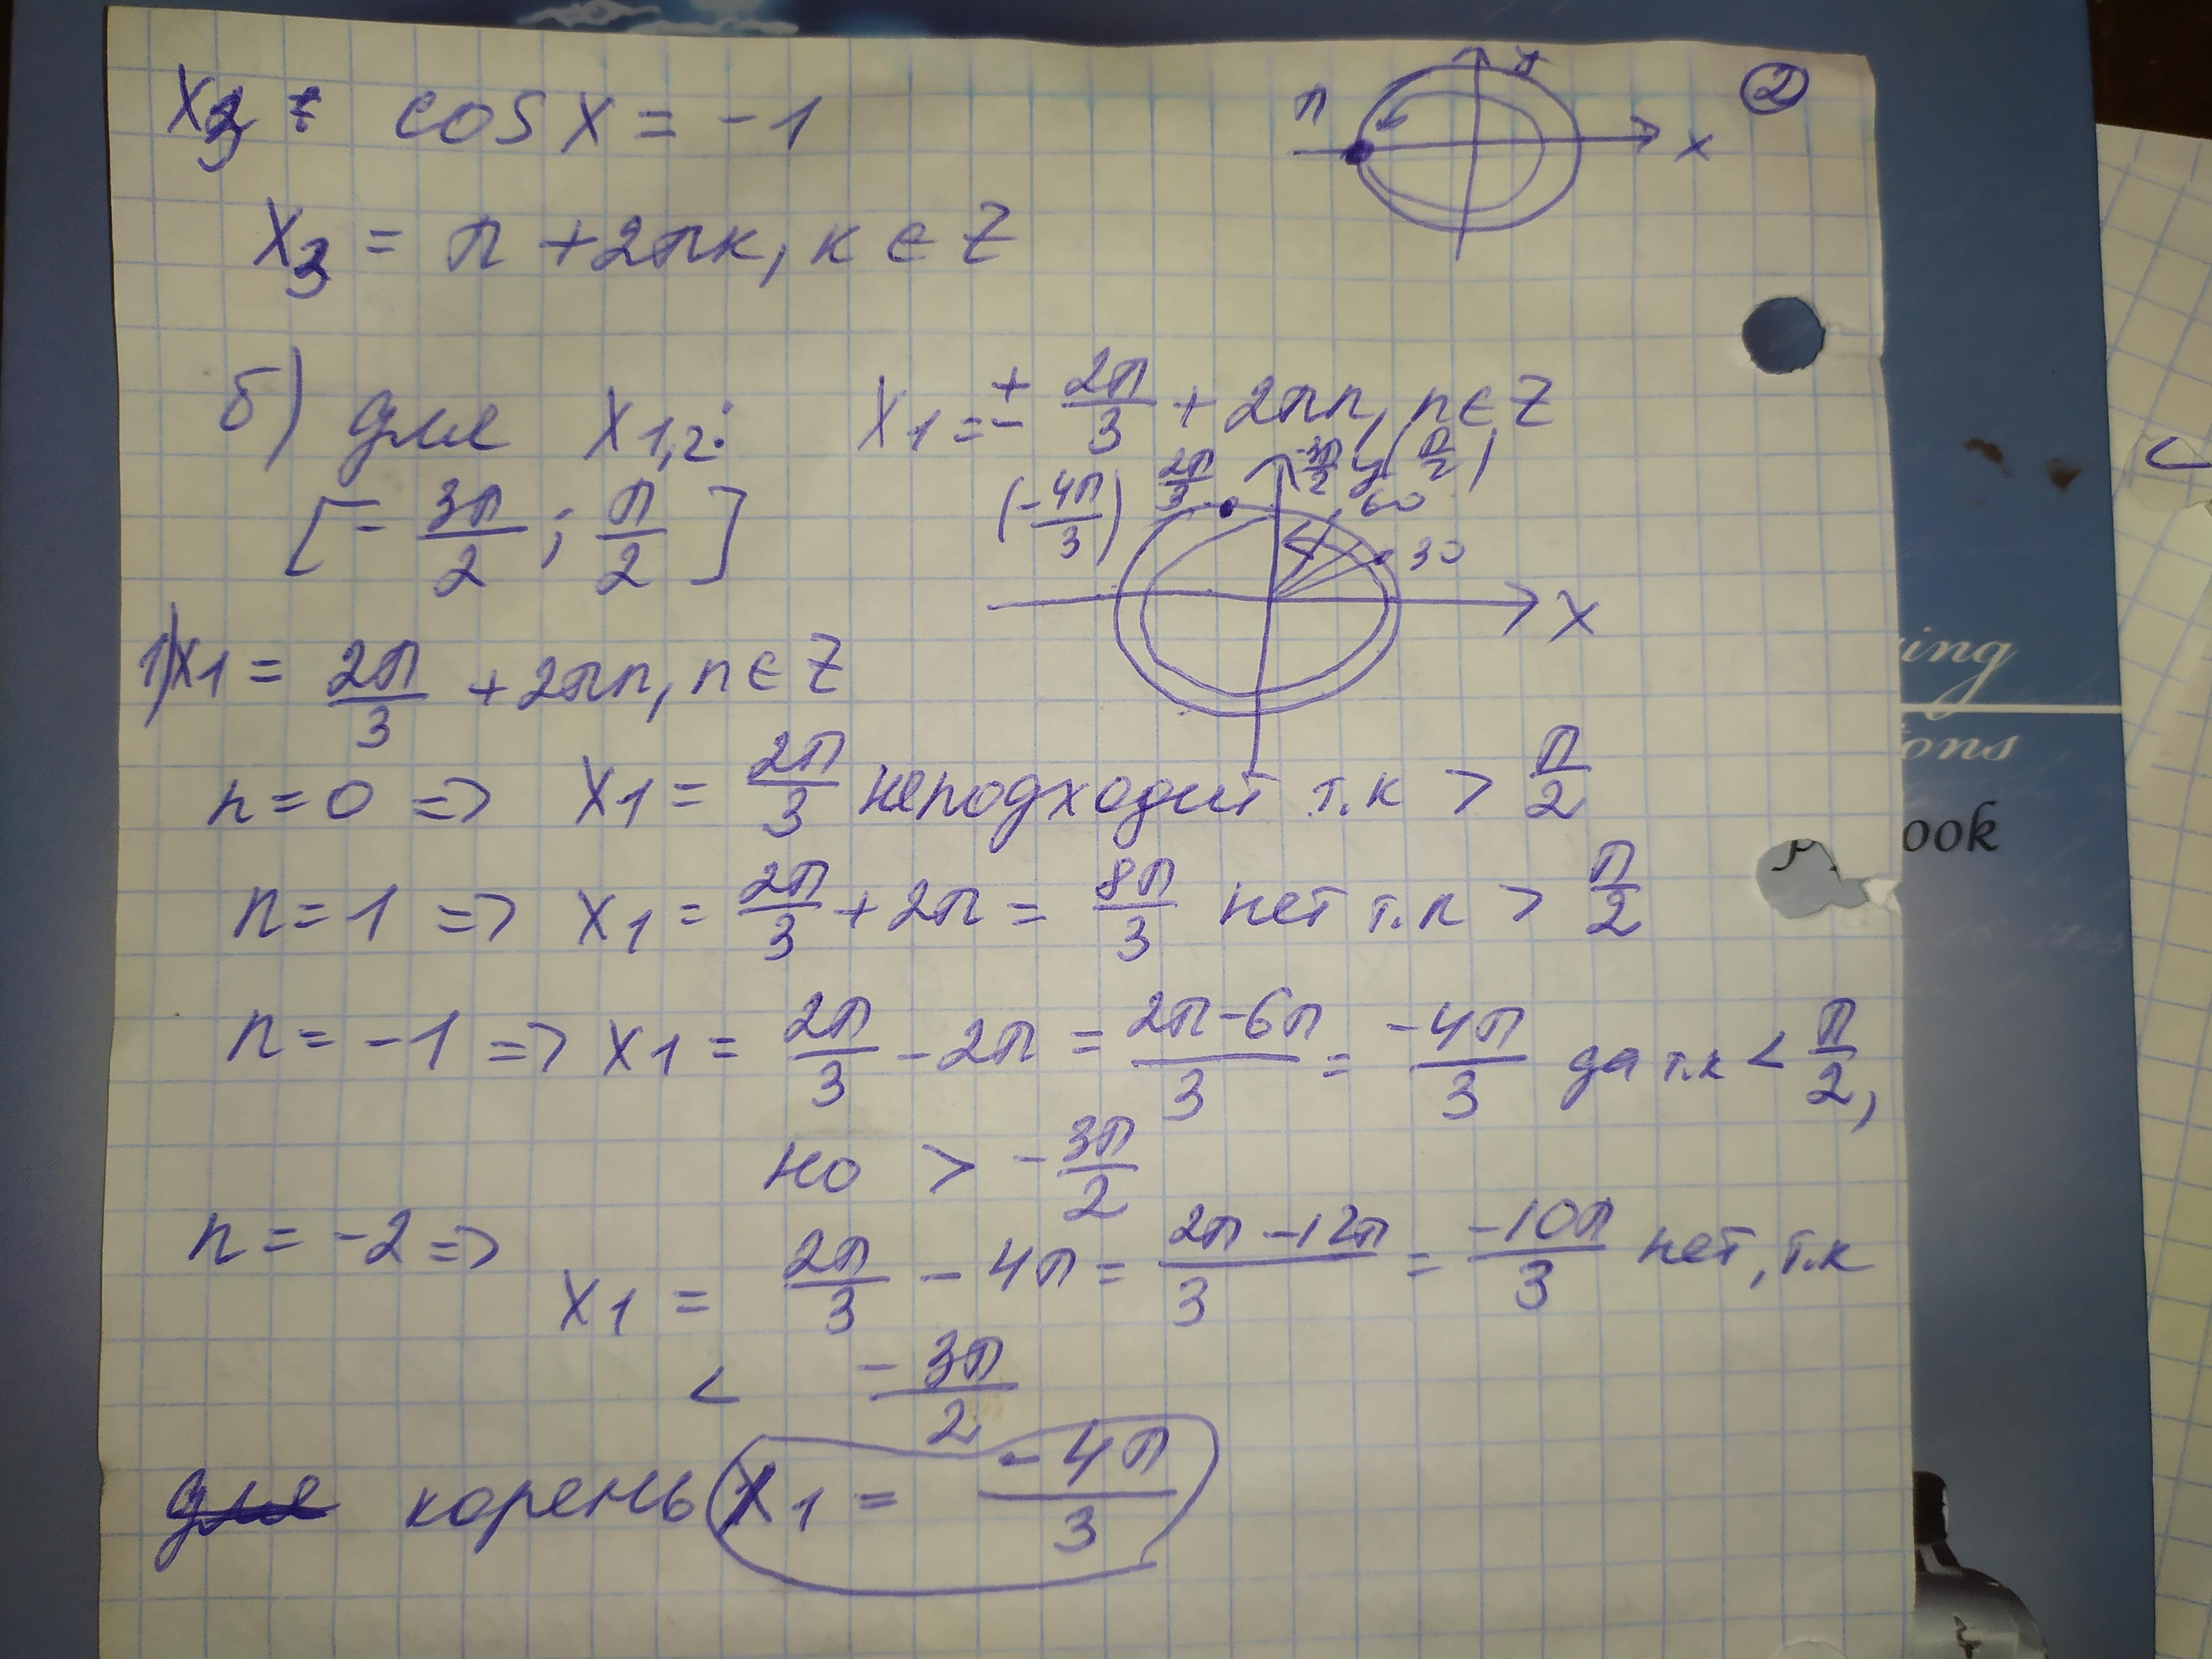 x₃ : cos x = -1
y
π
x
②
x₃ = π + 2πк, к ∈ Z
б) для x₁,₂: x₁ = ± 2π/3 + 2πn, n ∈ Z
[-3π/2 ; π/2]
(-4π/3) 2π/3 -3π/2 y (π/2)
60
30
x
1) x₁ = 2π/3 + 2πn, n ∈ Z
n = 0 => x₁ = 2π/3 неподходит т.к > π/2
n = 1 => x₁ = 2π/3 + 2π = 8π/3 нет т.к > π/2
n = -1 => x₁ = 2π/3 - 2π = (2π-6π)/3 = -4π/3 да т.к < π/2,
но > -3π/2
n = -2 =>
x₁ = 2π/3 - 4π = (2π-12π)/3 = -10π/3 нет, т.к
< -3π/2
для корень x₁ = -4π/3
ing
ons
ook